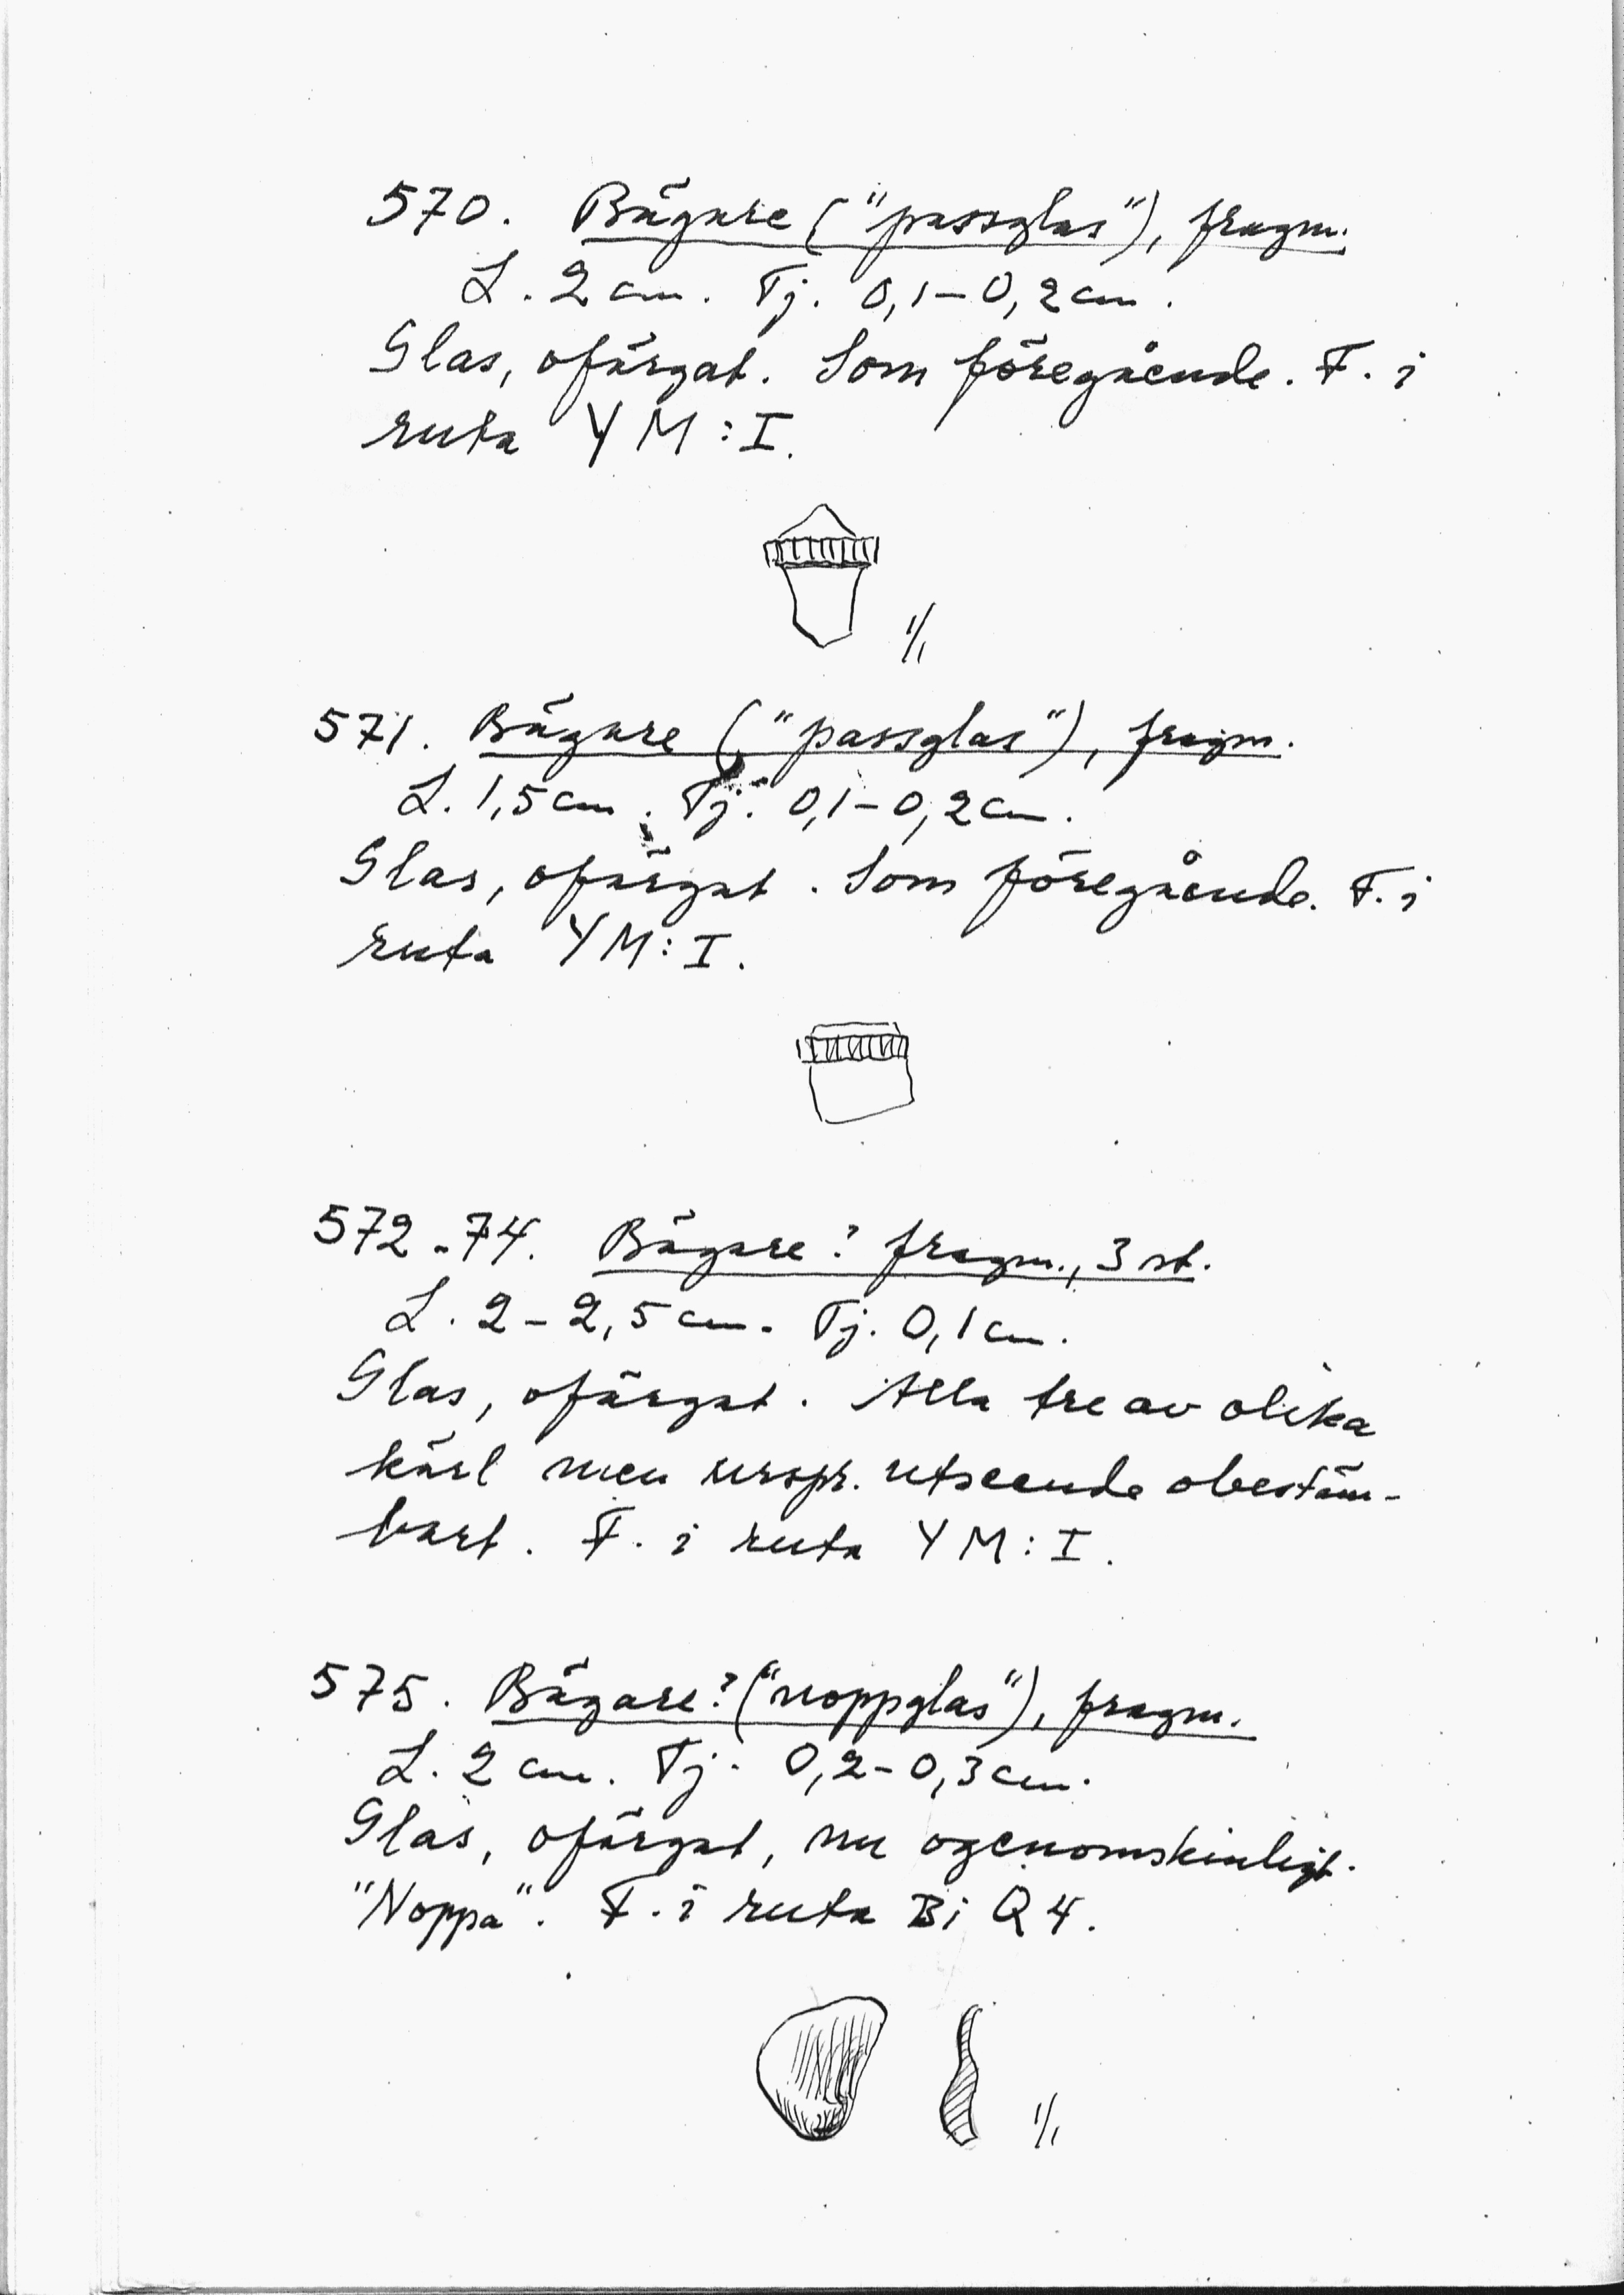 570. Bägare ("passglas"), fragm.
L. 2 cm. Tj. 0,1–0,2 cm.
Glas, ofärgat. Som föregående. F. i
ruta YM:I.
1/1
571. Bägare ("passglas"), fragm.
L. 1,5 cm. Tj. 0,1–0,2 cm.
Glas, ofärgat. Som föregående. F. i
ruta YM:I.
572-74. Bägare? fragm., 3 st.
L. 2–2,5 cm. Tj. 0,1 cm.
Glas, ofärgat. Alla tre av olika
kärl men urspr. utseende obestäm-
bart. F. i ruta YM:I.
575. Bägare? ("noppglas"), fragm.
L. 2 cm. Tj. 0,2–0,3 cm.
Glas, ofärgat, nu ogenomskinligt.
"Noppa". F. i ruta Bi Q4.
1/1